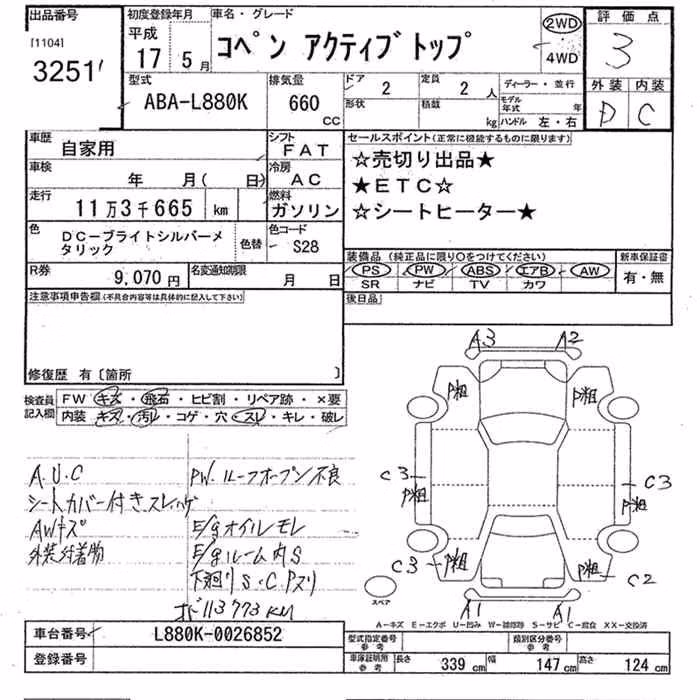 出品番号 初度登録年月 車名・グレード 2WD 評価点
[1104] 平成 コペン アクティブトップ ・ 3
3251 17 5月 4WD
型式 排気量 ドア 2 定員 2人 ディーラー・並行 外装 内装
ABA-L880K 660 CC 形状 積載 kg モデル年式 年 D C
ハンドル 左・右
車歴 自家用 シフト FAT セールスポイント(正常に機能するものに限ります)
車検 年 月( 日) 冷房 AC ☆売切り出品★
走行 11万3千665 km 燃料 ガソリン ★ETC☆
☆シートヒーター★
色 DC-ブライトシルバーメタリック 色替 色コード S28
装備品(純正品に限り○をつけてください) 新車保証書
R券 9,070円 名変通知期限 月 日 PS PW ABS エアB AW 有・無
SR ナビ TV カワ
注意事項申告欄(不具合内容等は具体的に記入して下さい) 後日品
修復歴 有〔箇所 〕
検査員記入欄 FW キズ・飛石・ヒビ割・リペア跡・×要
内装・キズ・汚レ・コゲ・穴・スレ・キレ・破レ
A.U.C PW.ルーフオープン不良
シートカバー付き スレハゲ
AWキズ E/gオイルモレ
外装付着物 E/gルーム内S
下廻りS・C Pスリ
113773KM
A3 A2
P粗 P粗
C3 C3
P粗 P粗
C3 P粗 P粗 C2
スペア
A1 A1
A-キズ E-エクボ U-凹み W-補修跡 S-サビ C-腐食 XX-交換済
車台番号 L880K-0026852 型式指定番号 参考 類別区分番号 参考
登録番号 車庫証明用 参考 長さ 339cm 幅 147cm 高さ 124cm